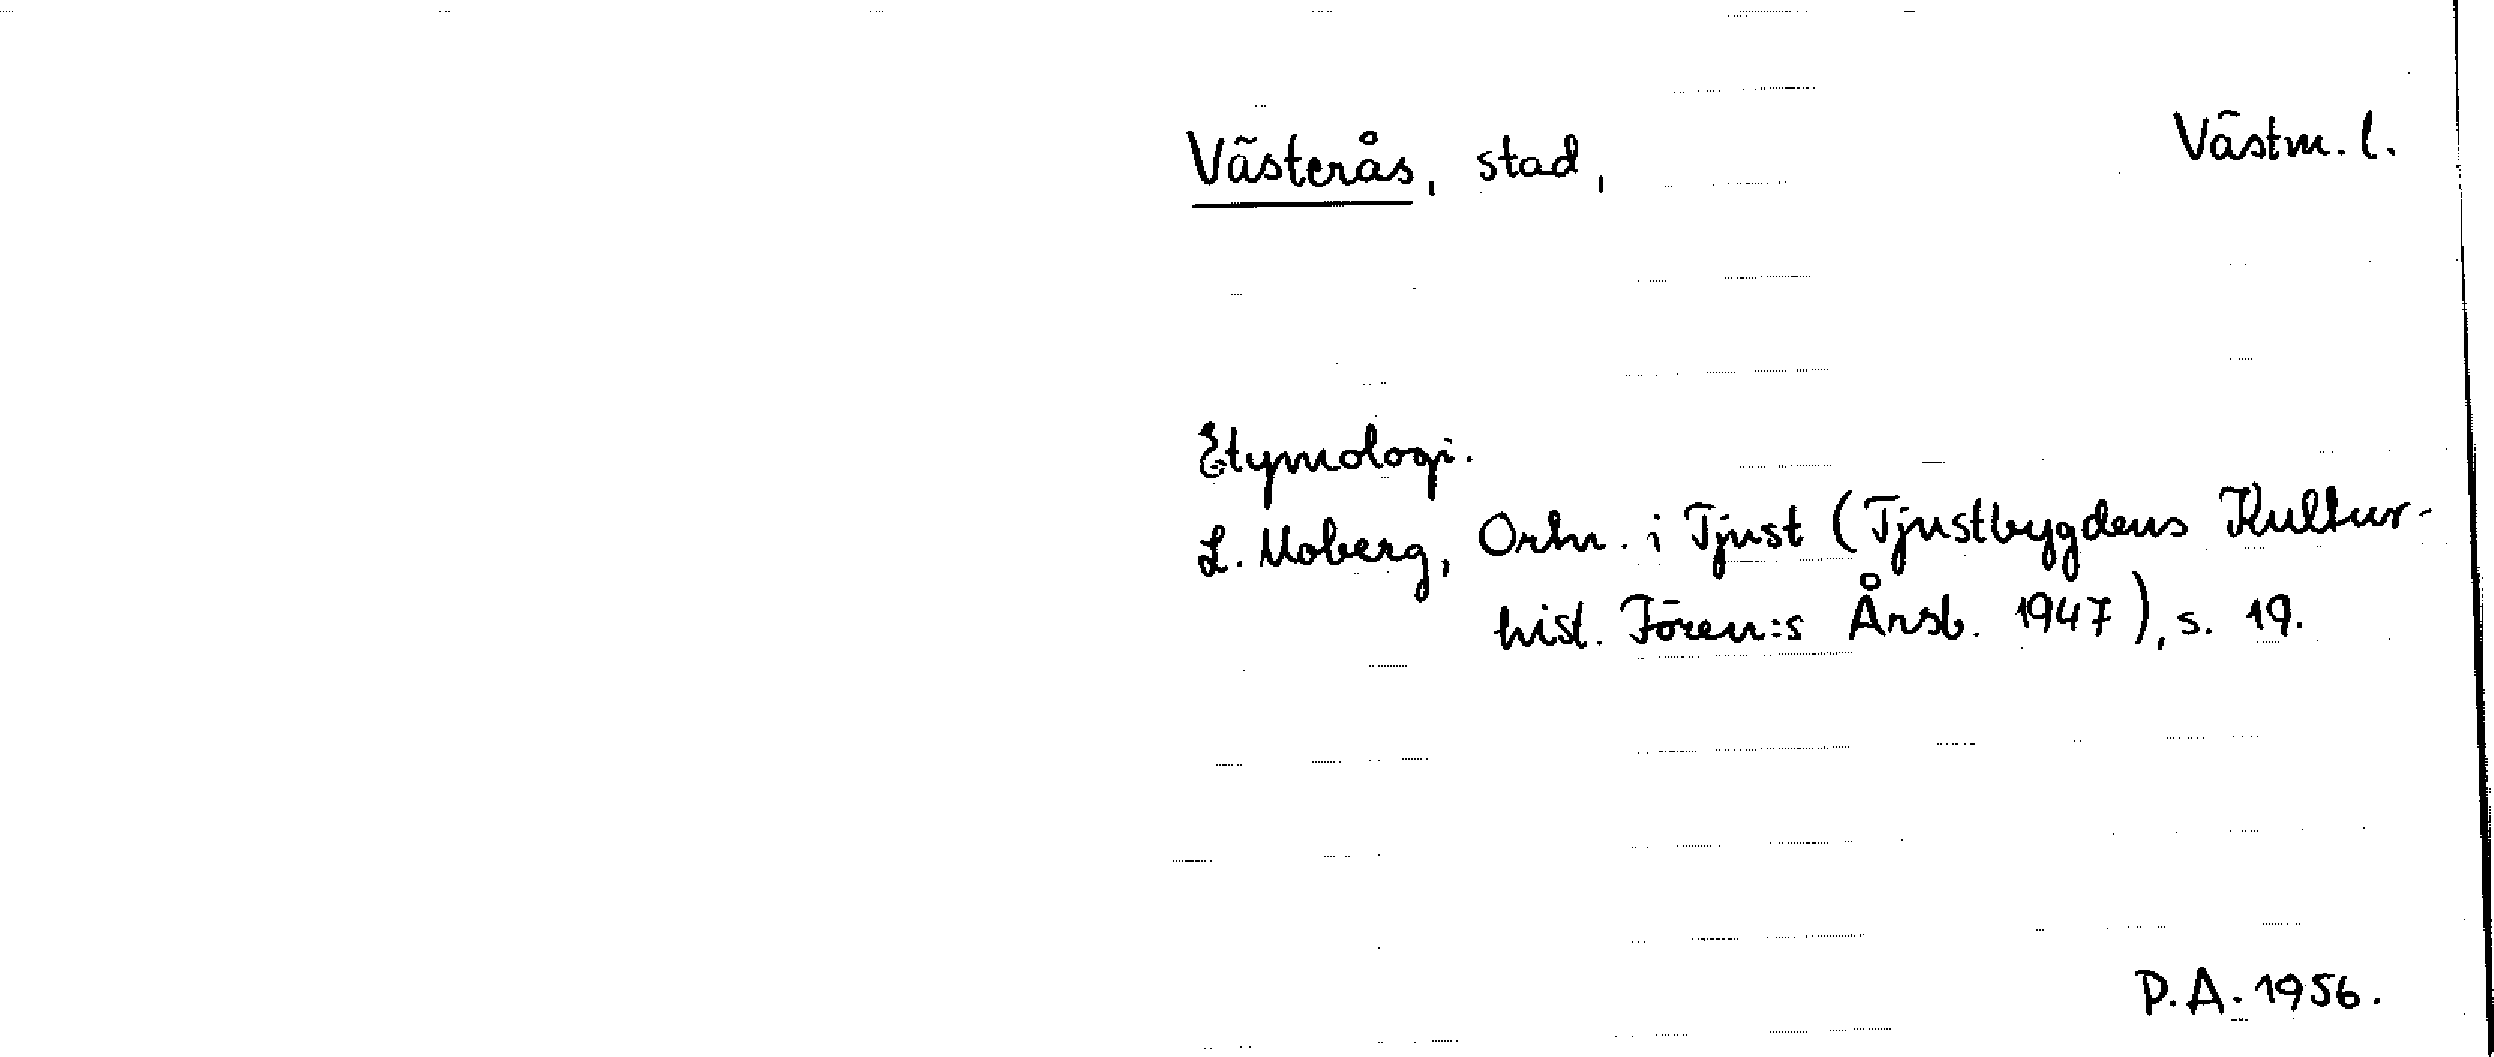 Västerås, stad,
Västm. l.
Etymologi.
L. Moberg, Ortn. i Tjust (Tjustbygdens Kultur-
hist. Fören:s Årsb. 1947), s. 19.
P.A. 1956.